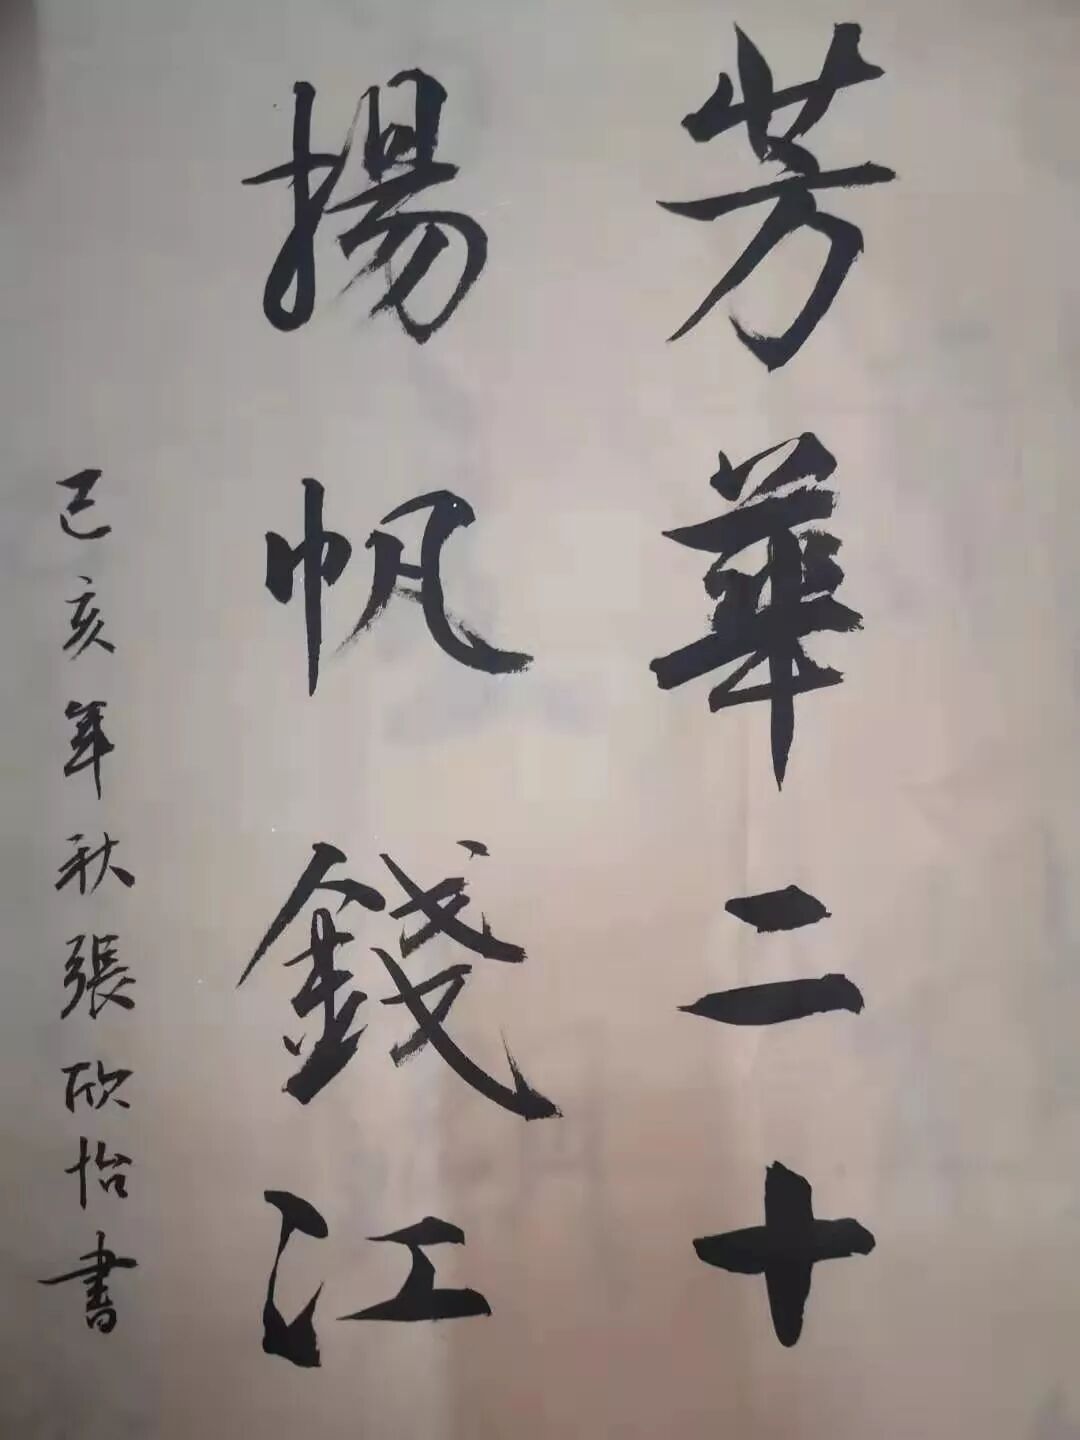 芳華二十
揚帆錢江
己亥年秋張欣怡書